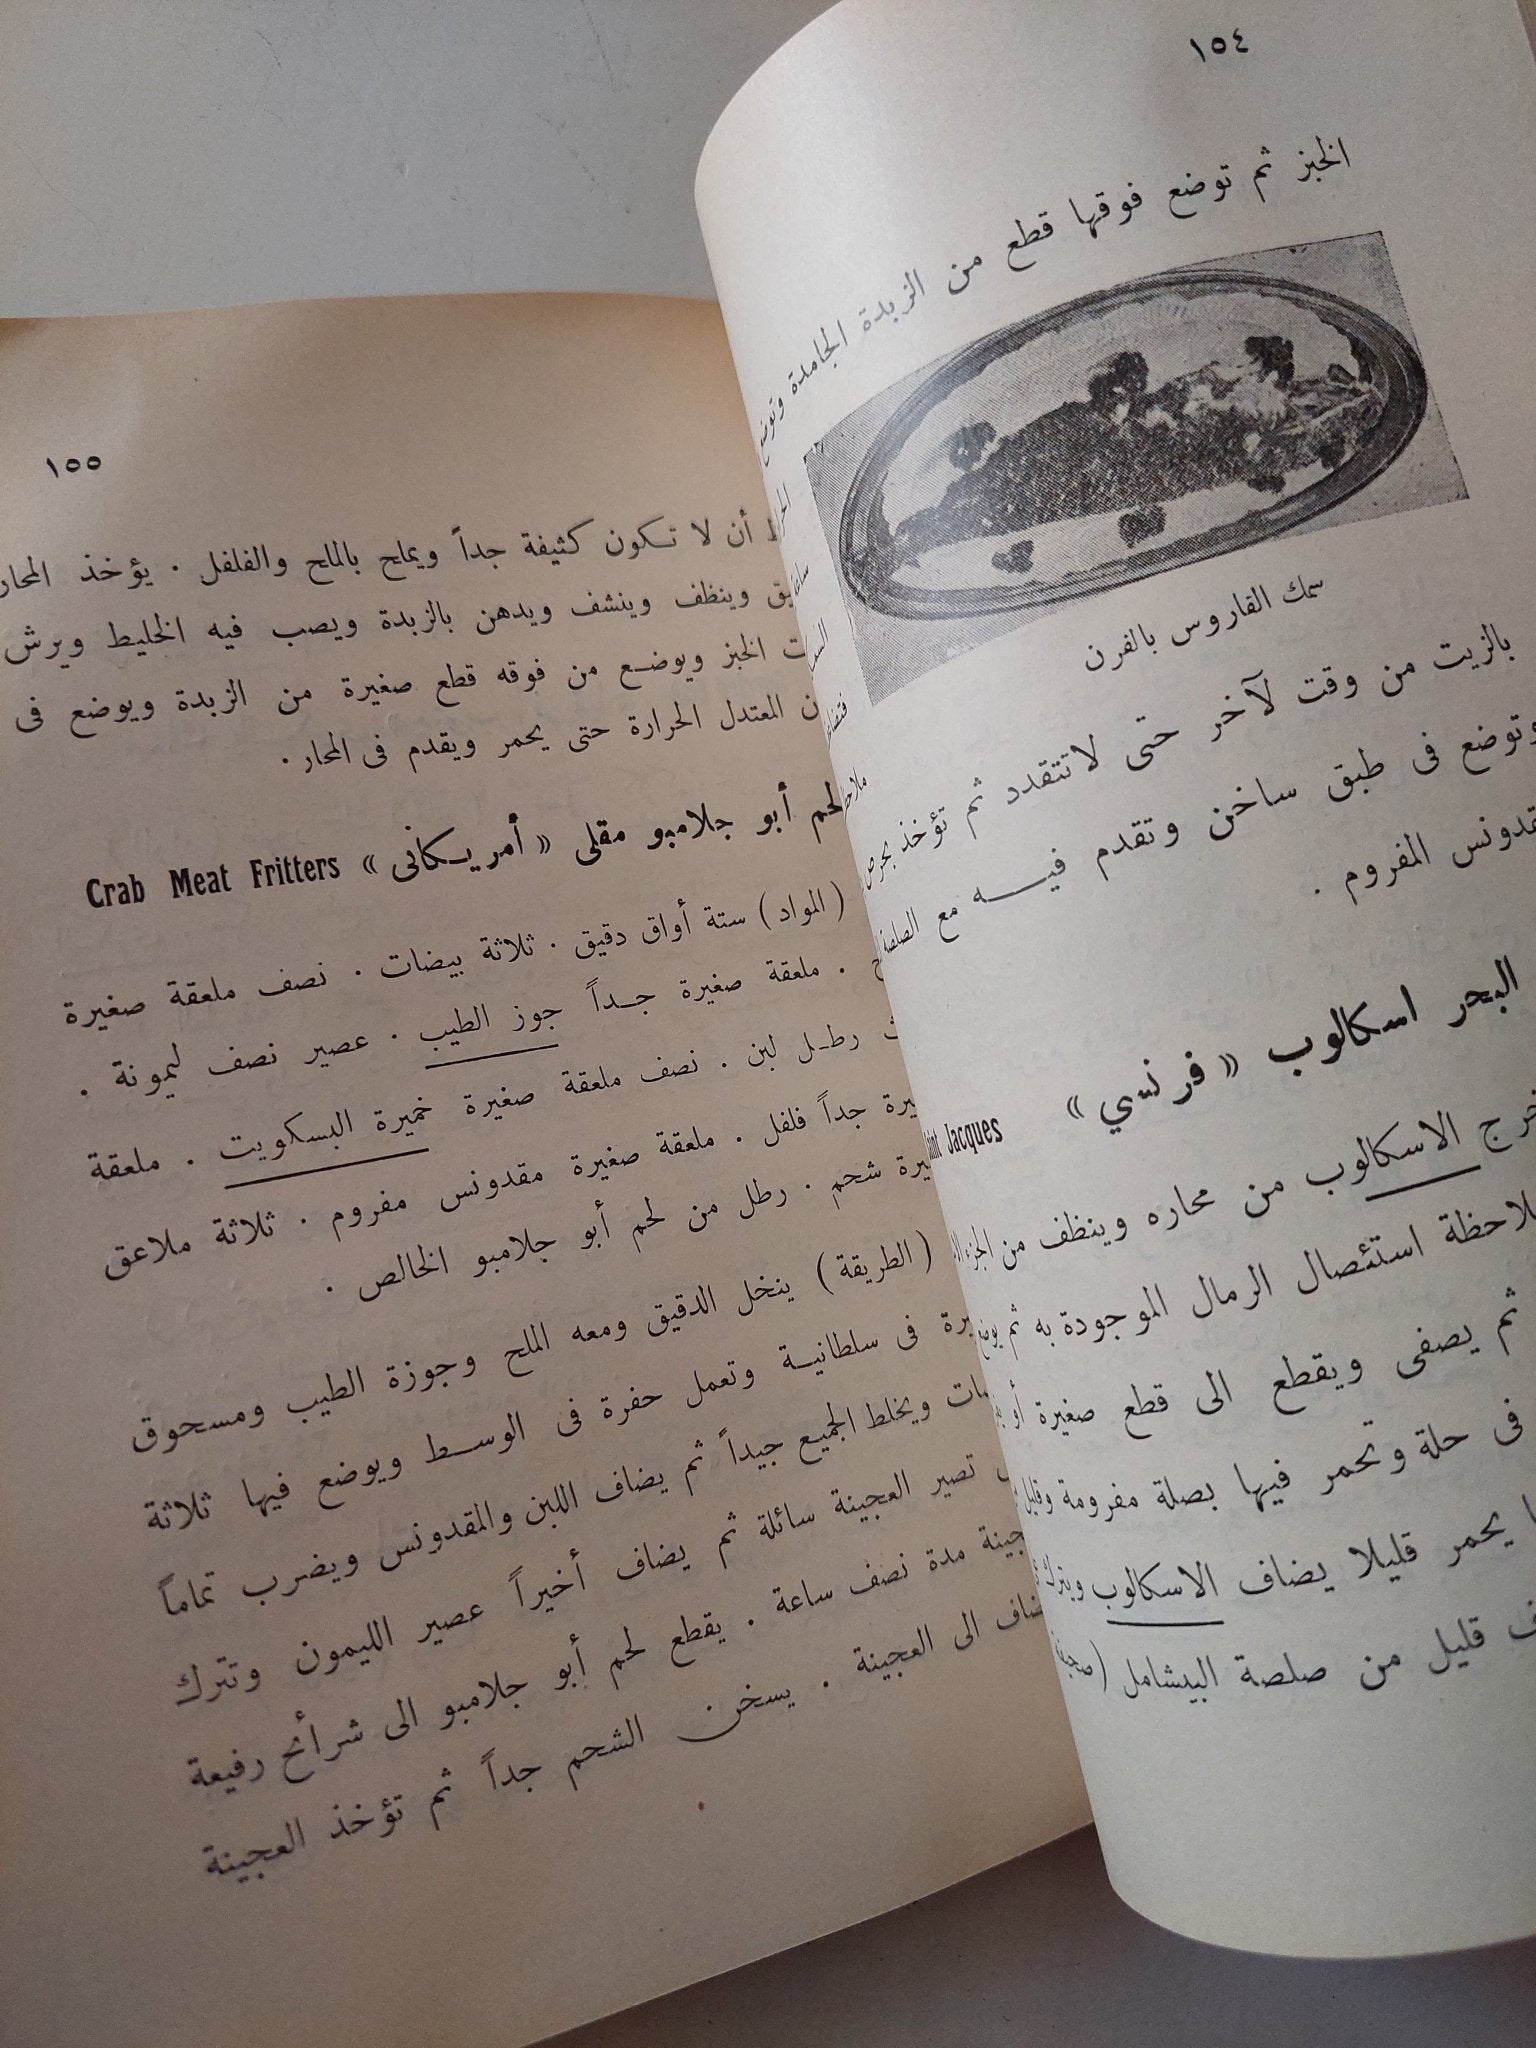 ١٥٤
الخبز ثم توضع فوقها قطع من الزبدة الجامدة وتوضع
سمك القاروس بالفرن
بالزيت من وقت لآخر حتى لا تتقدد ثم تؤخذ بحرص
وتوضع فى طبق ساخن وتقدم فيه مع الصلصة
المفروم .
البحر اسكالوب « فرنسي »
Jacques
الاسكالوب من محاره وينظف من
استئصال الرمال الموجودة به ثم يوضع
ثم يصفى ويقطع الى قطع صغيرة أو
فى حلة وتحمر فيها بصلة مفرومة وقليل
يحمر قليلا يضاف الاسكالوب ويترك
قليل من صلصة البيشامل
١٥٥
أن لا تكون كثيفة جداً ويملح بالملح والفلفل . يؤخذ المحار
وينظف وينشف ويدهن بالزبدة ويصب فيه الخليط ويرش
الخبز ويوضع من فوقه قطع صغيرة من الزبدة ويوضع فى
المعتدل الحرارة حتى يحمر ويقدم فى المحار .
لحم أبو جلامبو مقلى « أمريكانى » Crab Meat Fritters
( المواد ) ستة أواق دقيق . ثلاثة بيضات . نصف ملعقة صغيرة
. ملعقة صغيرة جداً جوز الطيب . عصير نصف ليمونة .
رطل لبن . نصف ملعقة صغيرة خميرة البسكويت . ملعقة
جداً فلفل . ملعقة صغيرة مقدونس مفروم . ثلاثة ملاعق
شحم . رطل من لحم أبو جلامبو الخالص .
( الطريقة ) ينخل الدقيق ومعه الملح وجوزة الطيب ومسحوق
فى سلطانية وتعمل حفرة فى الوسط ويوضع فيها ثلاثة
ويخلط الجميع جيداً ثم يضاف اللبن والمقدونس ويضرب تماماً
تصير العجينة سائلة ثم يضاف أخيراً عصير الليمون وتترك
مدة نصف ساعة . يقطع لحم أبو جلامبو الى شرائح رفيعة
الى العجينة . يسخن الشحم جداً ثم تؤخذ العجينة